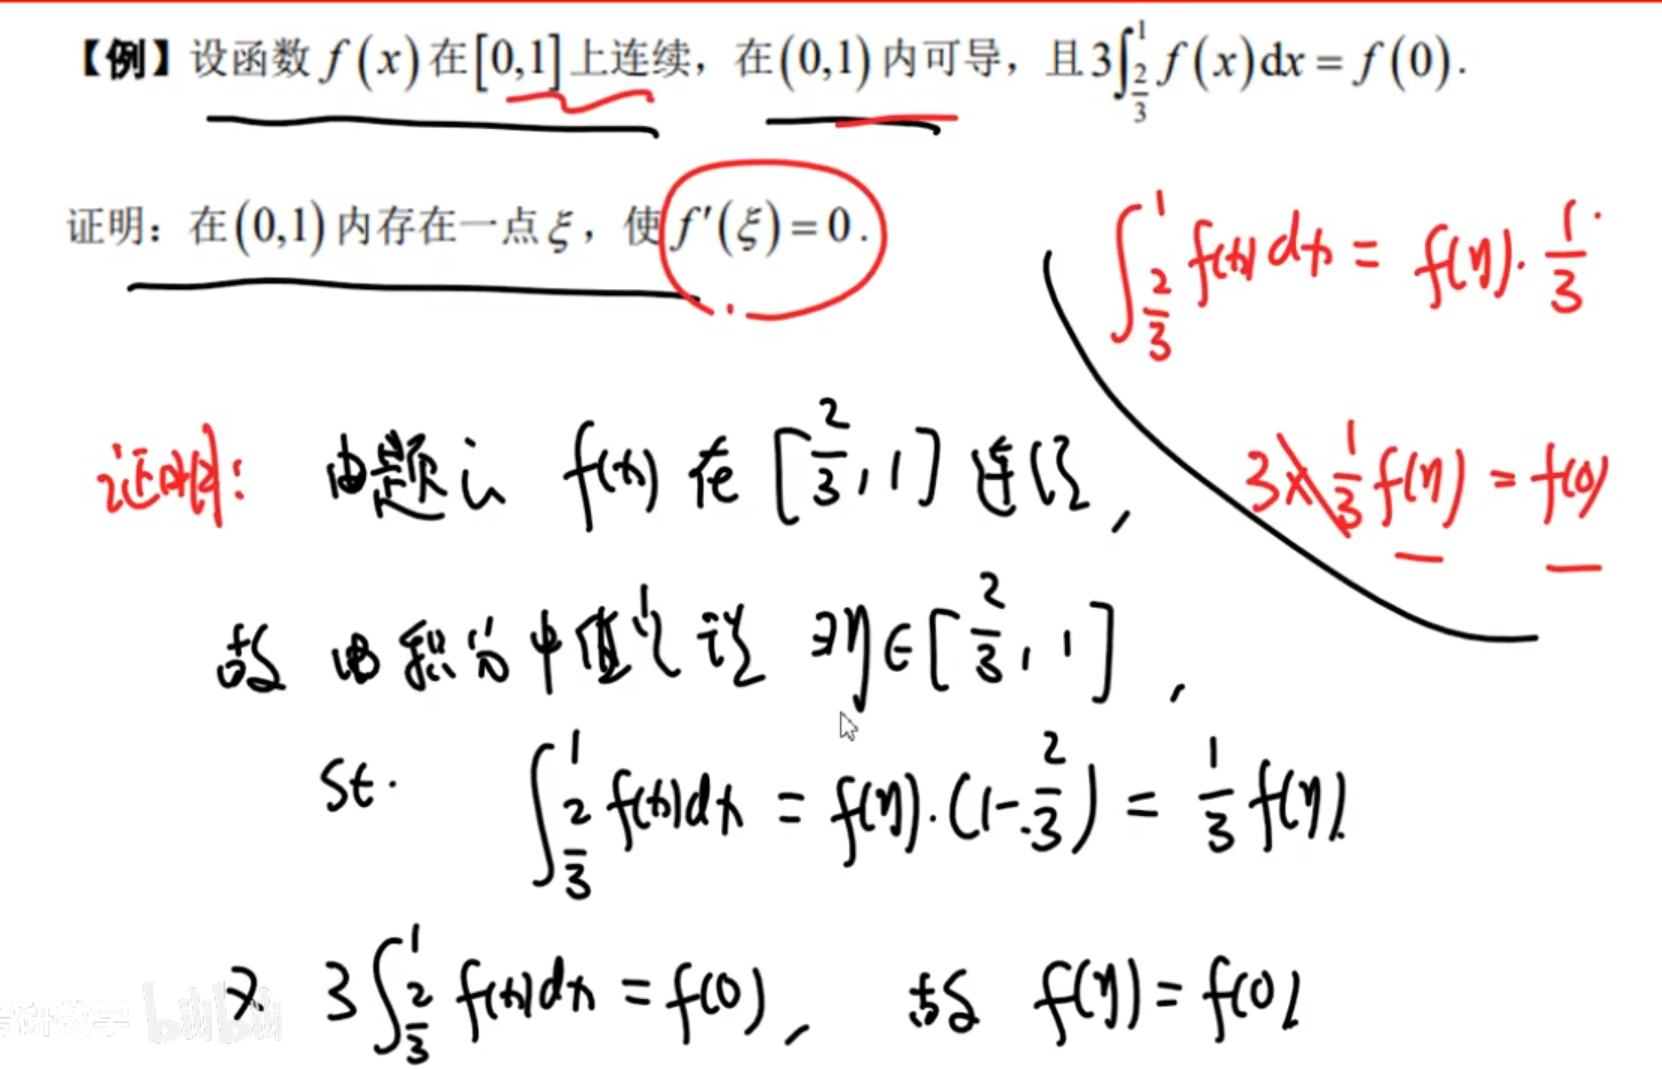 【例】设函数 f(x) 在[0,1]上连续，在(0,1)内可导，且3∫_{2/3}^{1} f(x)dx = f(0).
证明：在(0,1)内存在一点ξ，使f′(ξ)=0.
∫_{2/3}^{1} f(x)dx = f(η)·1/3
3×1/3 f(η) = f(0)
证明: 由题设 f(x) 在 [2/3, 1] 连续,
故 由积分中值定理 ∃η∈[2/3, 1],
st. ∫_{2/3}^{1} f(x)dx = f(η)·(1-2/3) = 1/3 f(η).
又 3∫_{2/3}^{1} f(x)dx = f(0), 故 f(η) = f(0)
考研数学 bilibili